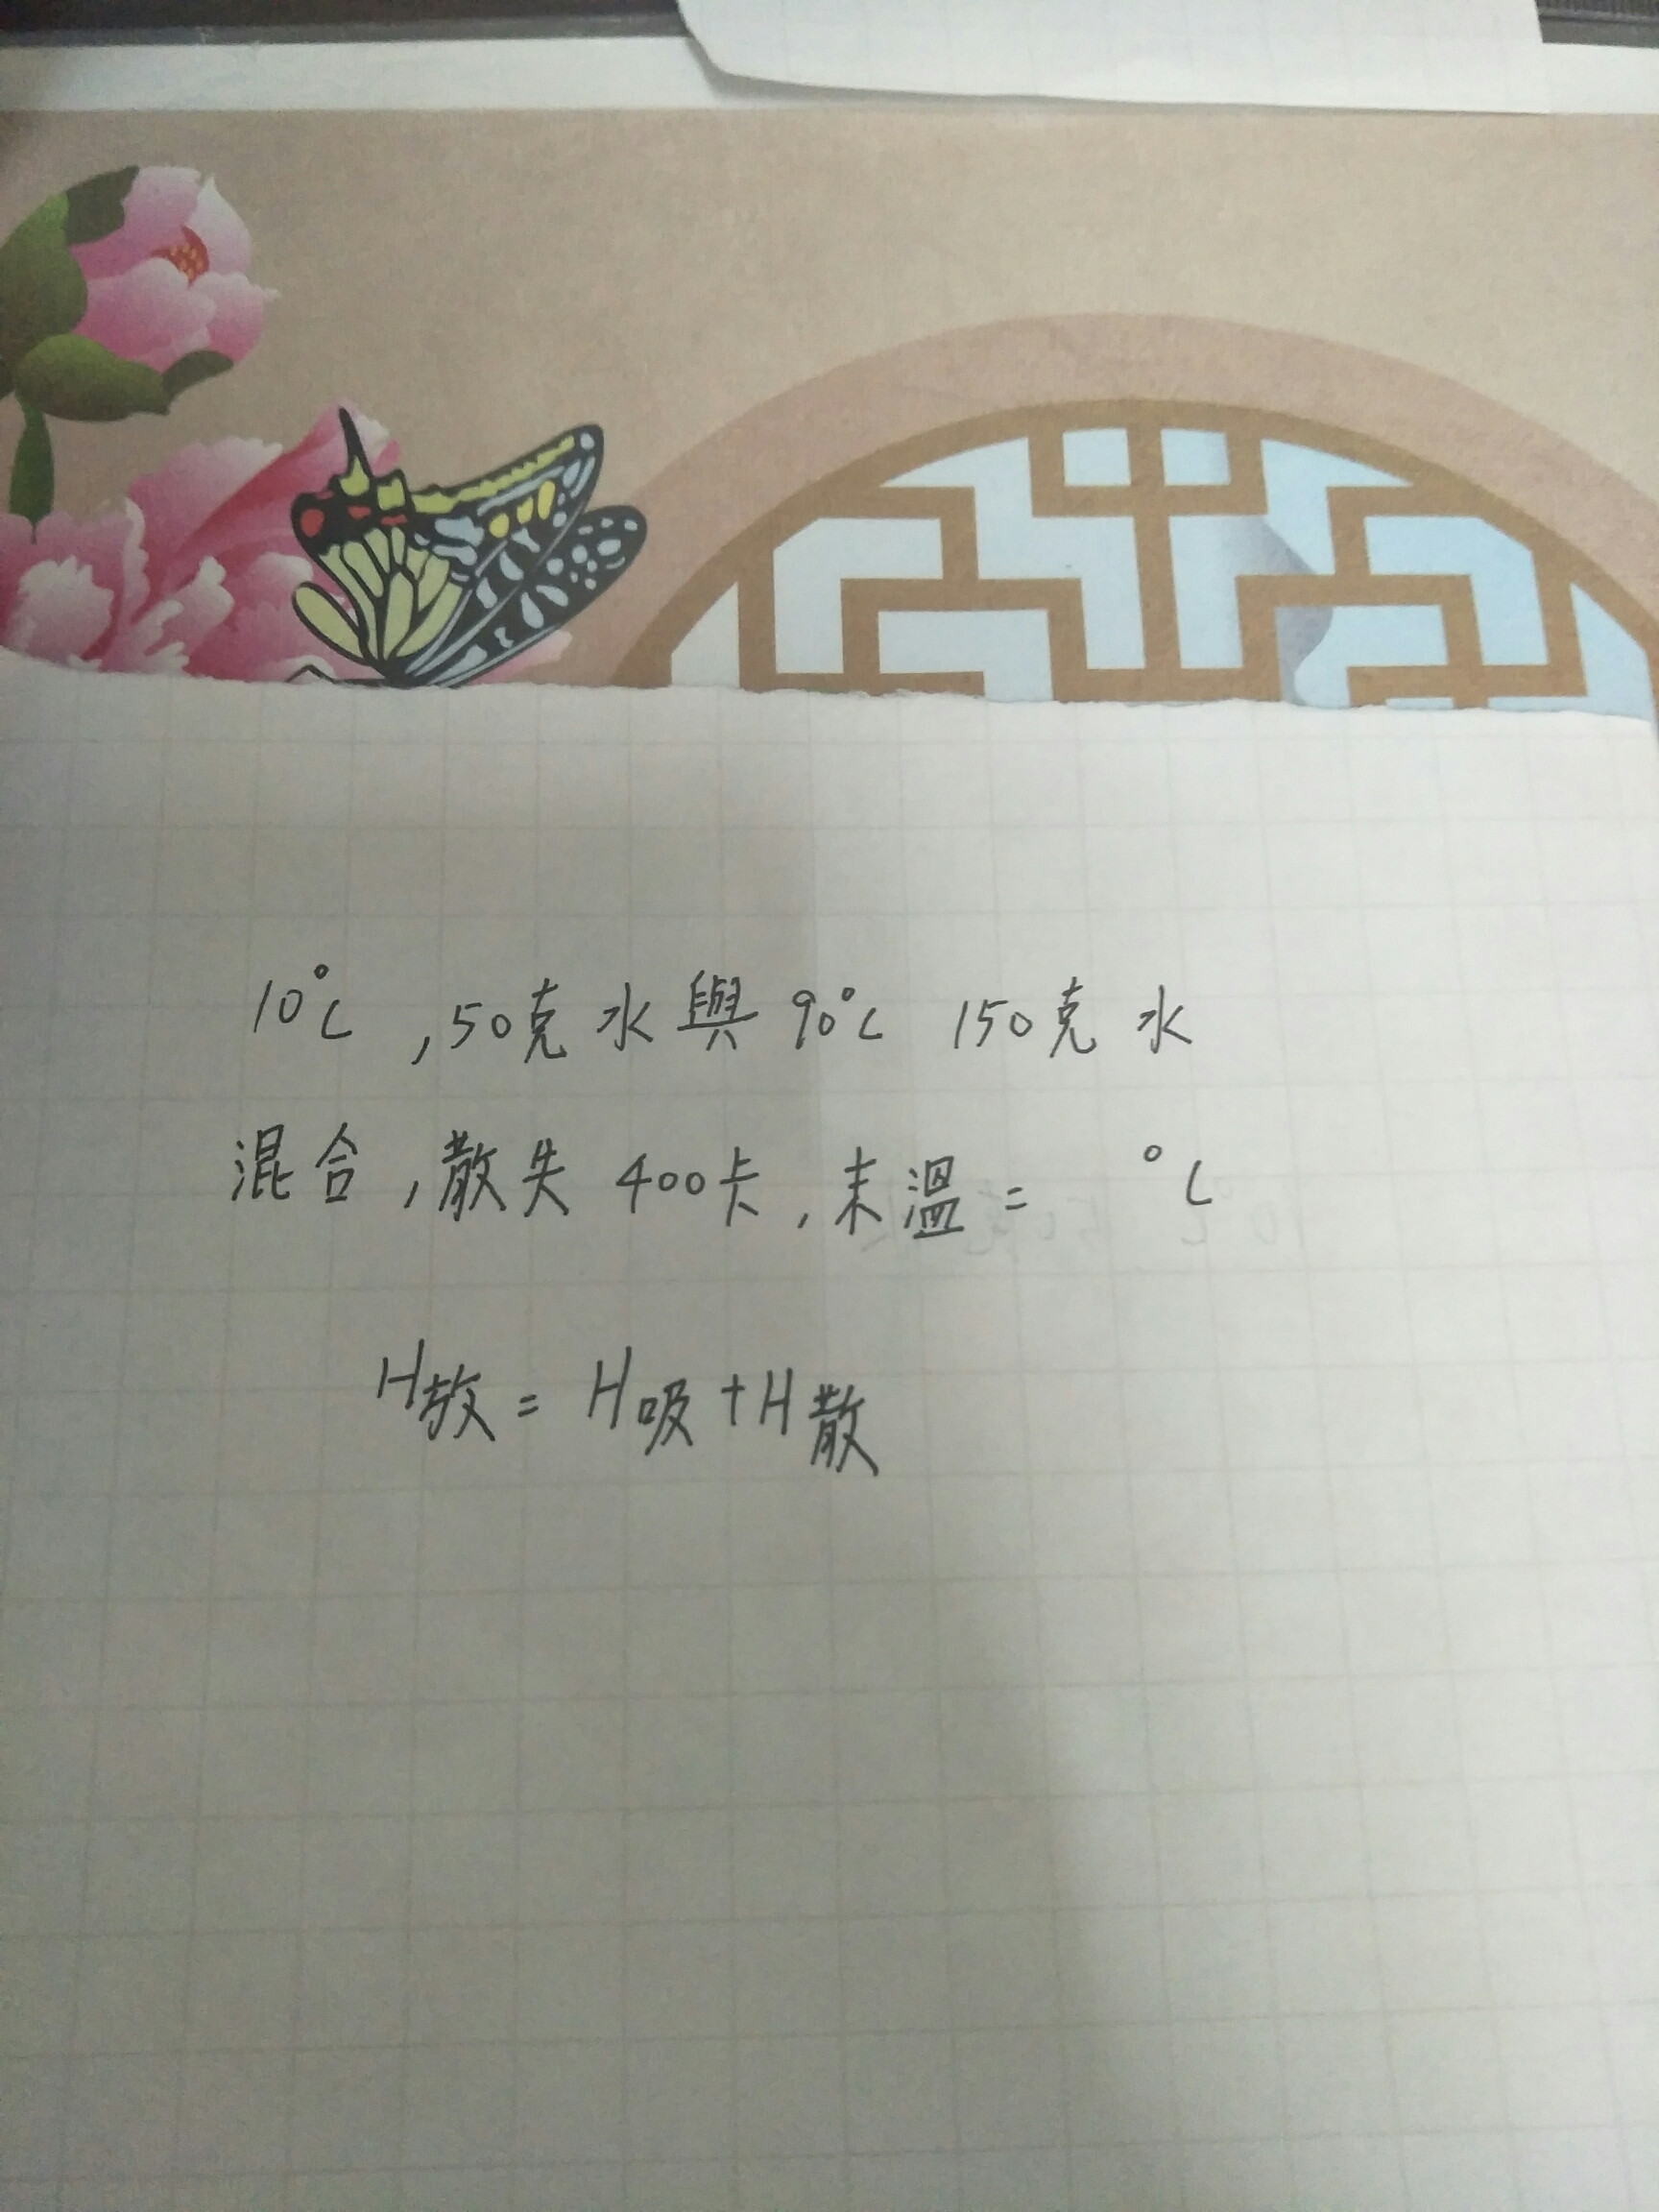 10°C ,50克水與 90°C 150克水
混合,散失 400卡,末溫= °C
H放= H吸+H散